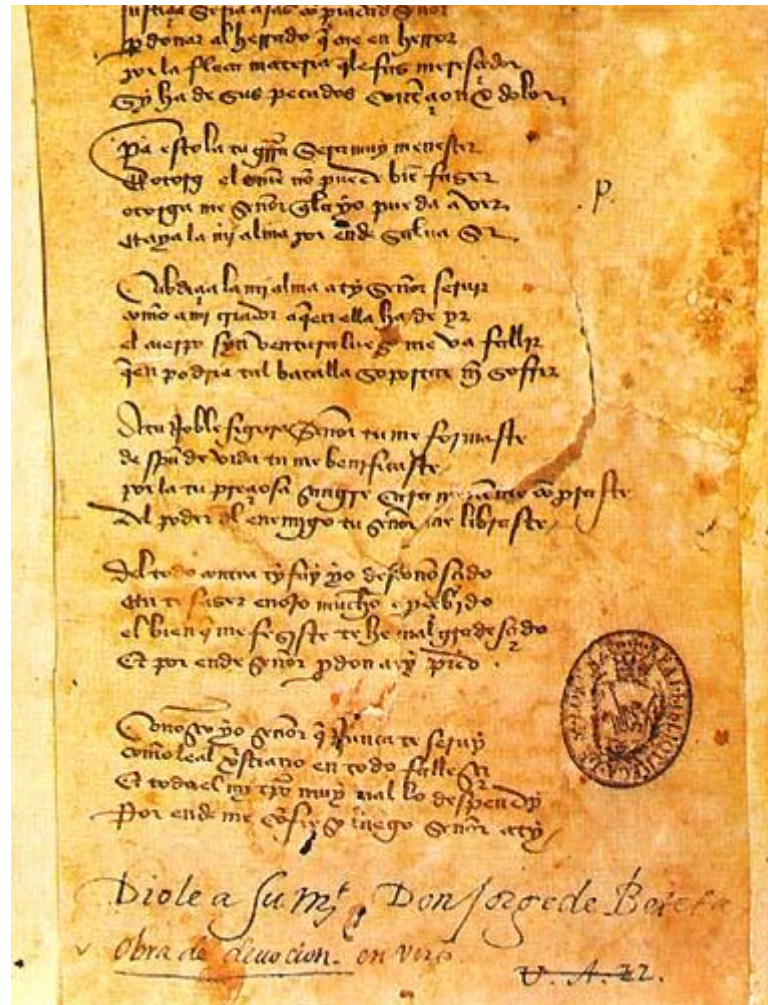 justiçia seria asas
perdonar al herrado que cae en herror
por la flaca materia
Sy ha de sus pecados dolor
Para esto la tu graçia Sera muy menester
el ome no puede bie faser
otorga me Señor que la yo pueda aver
la mi alma por ende salua Ser
Cubdiçia la mi alma a ty Señor seruir
como a mi criador a quien ella ha de yr
el cuerpo syn ventura luego me va fallir
quien podria tal batalla soportar nin soffrir
A tu noble figura Señor tu me formaste
de spu de vida tu me benificaste
por la tu preçiosa sangre cara mente me conpraste
Del poder del enemigo tu señor me libraste
Del todo contra ty fuy yo desconosçido
En te faser enojo mucho
el bien que me fesiste te he mal gradesçido
Et por ende señor perdon a ty pido
Conosco yo señor que Nunca te seruy
como leal xstiano en todo fallesçy
Et todo el mi tpo muy mal lo despendy
Por ende me confieso luego señor a ty
p.
Diole a Su Mt. Don Jorge de Beteta
Obra de deuocion. en verso
V. A. 22.